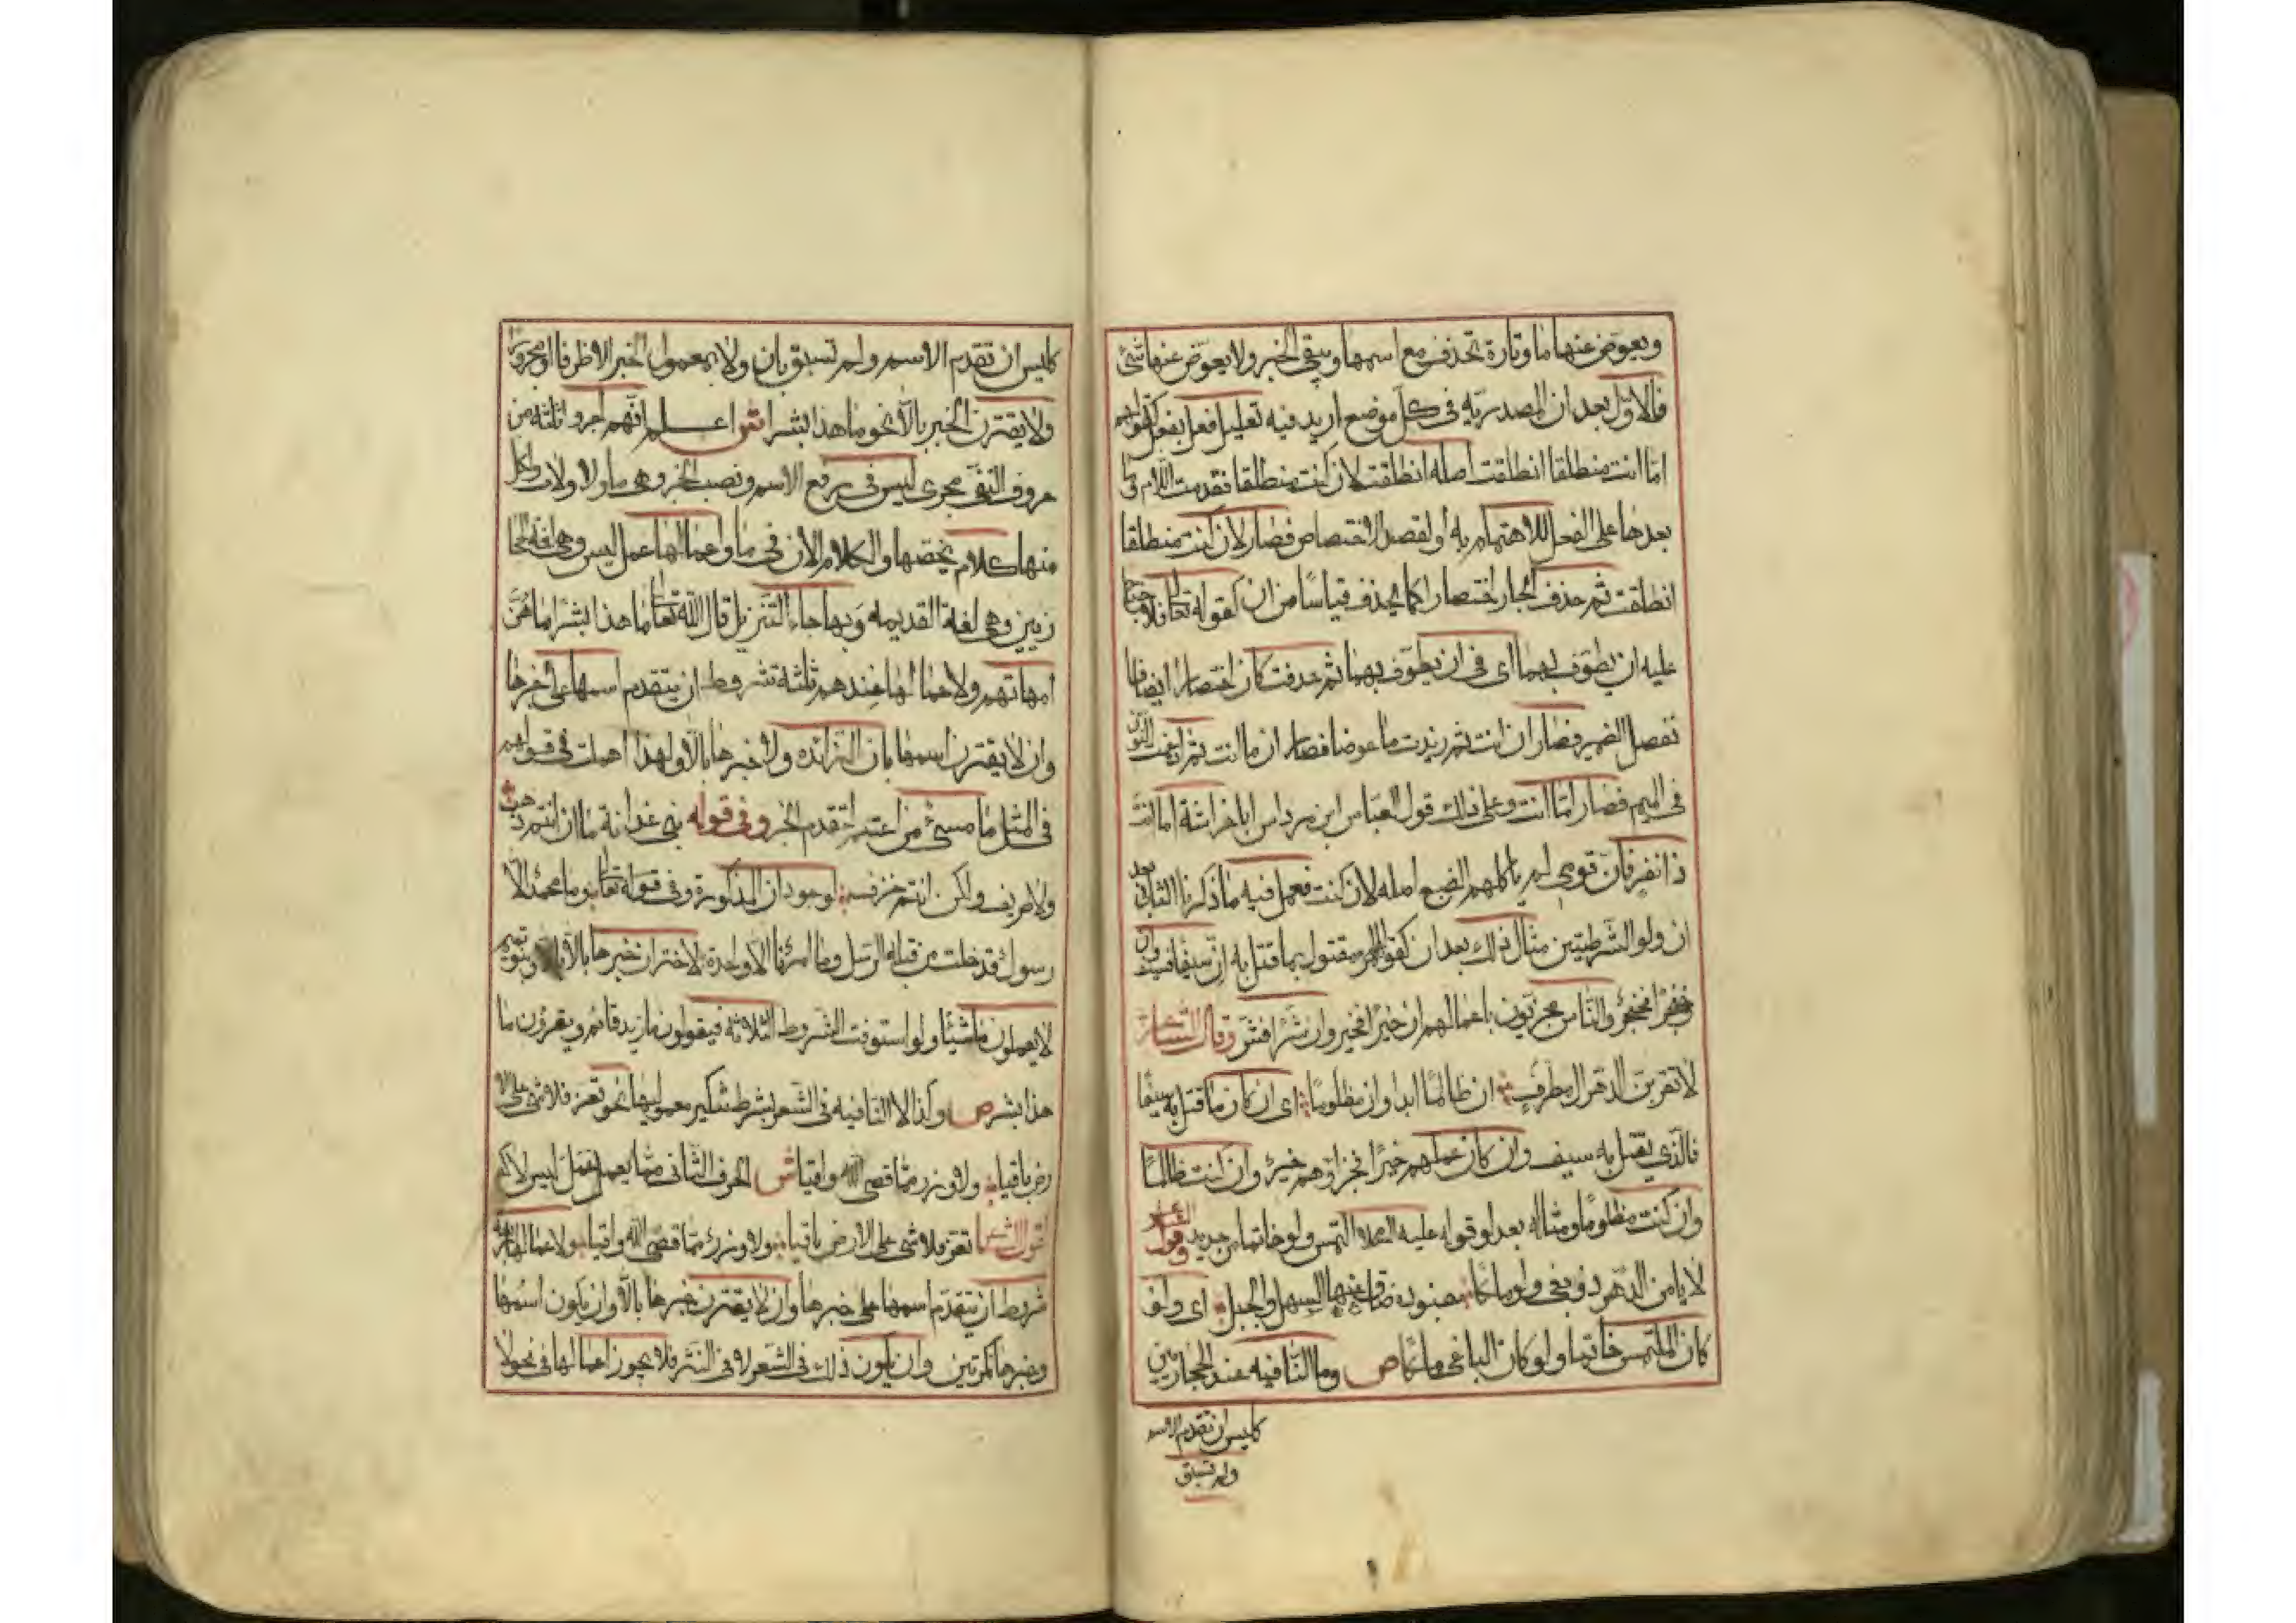 ويعوض عنها ما وتارة تحذف مع اسمها ويبقى الخبر ولا يعوض عنها شئ
فالاول بعد ان المصدرية فى كل موضع اريد فيه تعليل فعل بفعل كقولهم
اما انت منطلقا انطلقت اصله انطلقت لان كنت منطلقا فقدمت اللام وما
بعدها على الفعل للاهتمام به أو لقصد الاختصاص فصار لان كنت منطلقا
انطلقت ثم حذف الجار اختصارا كما يحذف قياسًا من ان كقوله تعالى فلا جناح
عليه ان يطوف بهما اى فى ان يطوف بهما ثم حذفت كان اختصارا ايضا فا
نفصل الضمير فصار ان انت ثم زيدت ما عوضا فصار ان ما انت ثم ادغمت النون
فى الميم فصار امّا انت وعلى ذلك قول العباس ابن مرداس ابا خراشة اما انت
ذا نفر فان قومى لم ياكلهم الضبع اصله لان كنت فعمل فيه ما ذكرنا الثانى بعد
ان ولو الشرطيتين مثال ذلك بعد ان كقولهم المرء مقتول بما قتل به ان سيفا فسيف وان
خنجرًا فخنجرٌ والناس مجزيون باعمالهم ان خيرًا فخير وان شرًا فشر وقال الشاعر
لا تقربن الدهر ال مطرفٍ ان ظالمًا ابدا وان مظلومًا اى ان كان ما قتل به سيفًا
فالذى يقتل به سيف وان كان عملهم خيرًا فجزاؤهم خيرٌ وان كنت ظالمًا
وان كنت مظلوما ومثاله بعد لو قوله عليه السلام التمس ولو خاتما من حديد وقول الشاعر
لا يامن الدهر ذو بغى ولو ملكًا جنوده ضاق عنها السهل والجبل اى ولو
كان الملتمس خاتما ولو كان الباغى ملكًا ص وما النافيه عند الحجازيين
كليس ان تقدم الاسم
ولم تسبق
كليس ان تقدم الاسم ولم تسبق بان ولا بمعمول الخبر الا ظرفا او مجرورًا
ولا يقترن الخبر بالّا نحو ما هذا بشرا ش اعلم انهم اجروا ثلثة من
حروف النفى مجرى ليس فى رفع الاسم ونصب الخبر وهى ما ولا ولات ولكل
منها كلام يخصها والكلام الان فى ما واعمالها عمل ليس وهى لغة الحجا
زيين وهى لغة القديمه وبها جاء التنزيل قال الله تعالى ما هذا بشرًا ما هنّ
امهاتهم ولاعمالها عندهم ثلثة شروط ان يتقدم اسمها على خبرها
وان لا يقترن اسمها بان الزائده ولا خبرها بالّا ولهذا اهملت فى قولهم
فى المثل ما مسئٌ من اعتب لتقدم الخبر وفى قوله بنى غدانة ما ان انتم ذهب
ولا صريف ولكن انتم خزف لوجود ان المذكورة وفى قوله تعالى وما محمدٌ الّا
رسولٌ قد خلت من قبله الرسل وما امرنا الّا واحدة لاقتران خبرها بالّا وبنو تميم
لا يعملون ما شيئًا ولو استوفت الشروط الثلاثة فيقولون ما زيد قائم ويقرؤن ما
هذا بشر ص وكذا لا النافيه فى الشعر بشرط تنكير معموليها نحو تعز فلا شى على الا
رض باقيا ولا وزر مما قضى الله واقيا ش الحرف الثانى مما يعمل عمل ليس لا كـ
قول الشاعر تعز فلا شى على الارض باقيا ولا وزرٌ مما قضى الله واقيا ولاعمالها اربعة
شروط ان يتقدم اسمها على خبرها وان لا يقترن خبرها بالّا وان يكون اسمها
وخبرها نكرتين وان يكون ذلك فى الشعر لا فى النثر فلا يجوز اعمالها فى نحو لا